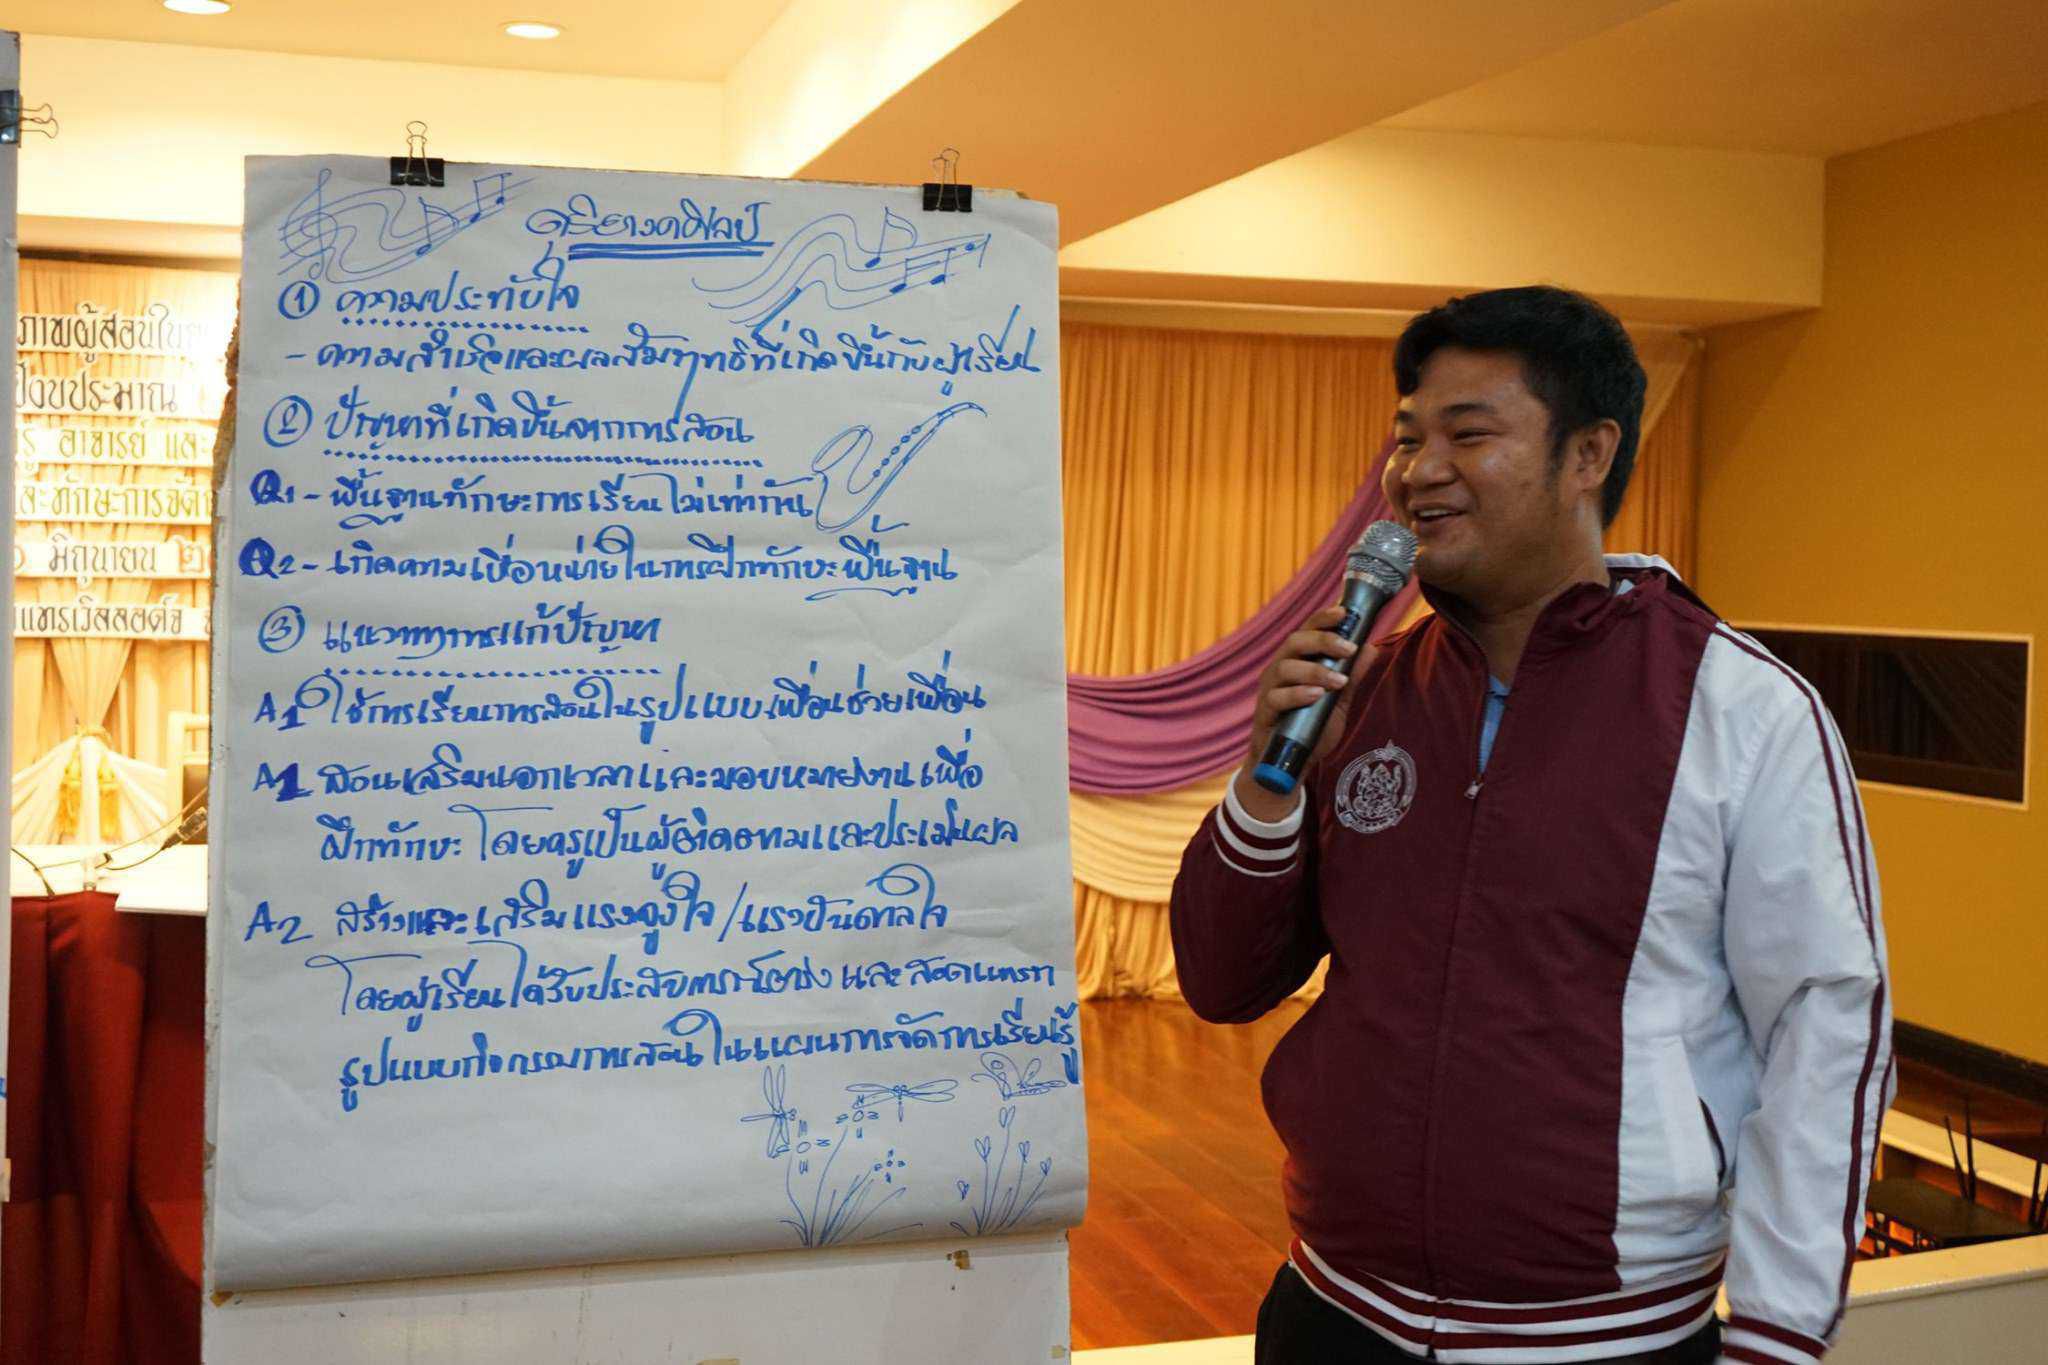 ภาพผู้สอนใน
ปีงบประมาณ
รู อาจารย์ และ
ละทักษะการจัด
มิถุนายน ๒
แทรเวิลลอด์จ
ดุริยางคศิลป์
① ความประทับใจ
- ความสำเร็จและผลสัมฤทธิ์ที่เกิดขึ้นกับผู้เรียน
② ปัญหาที่เกิดขึ้นจากการสอน
Q1 - พื้นฐานทักษะการเรียนไม่เท่ากัน
Q2 - เกิดความเบื่อหน่ายในการฝึกทักษะพื้นฐาน
③ แนวทางการแก้ปัญหา
A1 ใช้การเรียนการสอนในรูปแบบเพื่อนช่วยเพื่อน
A1 สอนเสริมนอกเวลาและมอบหมายงานเพื่อ
ฝึกทักษะ โดยครูเป็นผู้ติดตามและประเมินผล
A2 สร้างและเสริมแรงจูงใจ/แรงบันดาลใจ
โดยผู้เรียนได้รับประสบการณ์ตรง และสอดแทรก
รูปแบบกิจกรรมการสอนในแผนการจัดการเรียนรู้